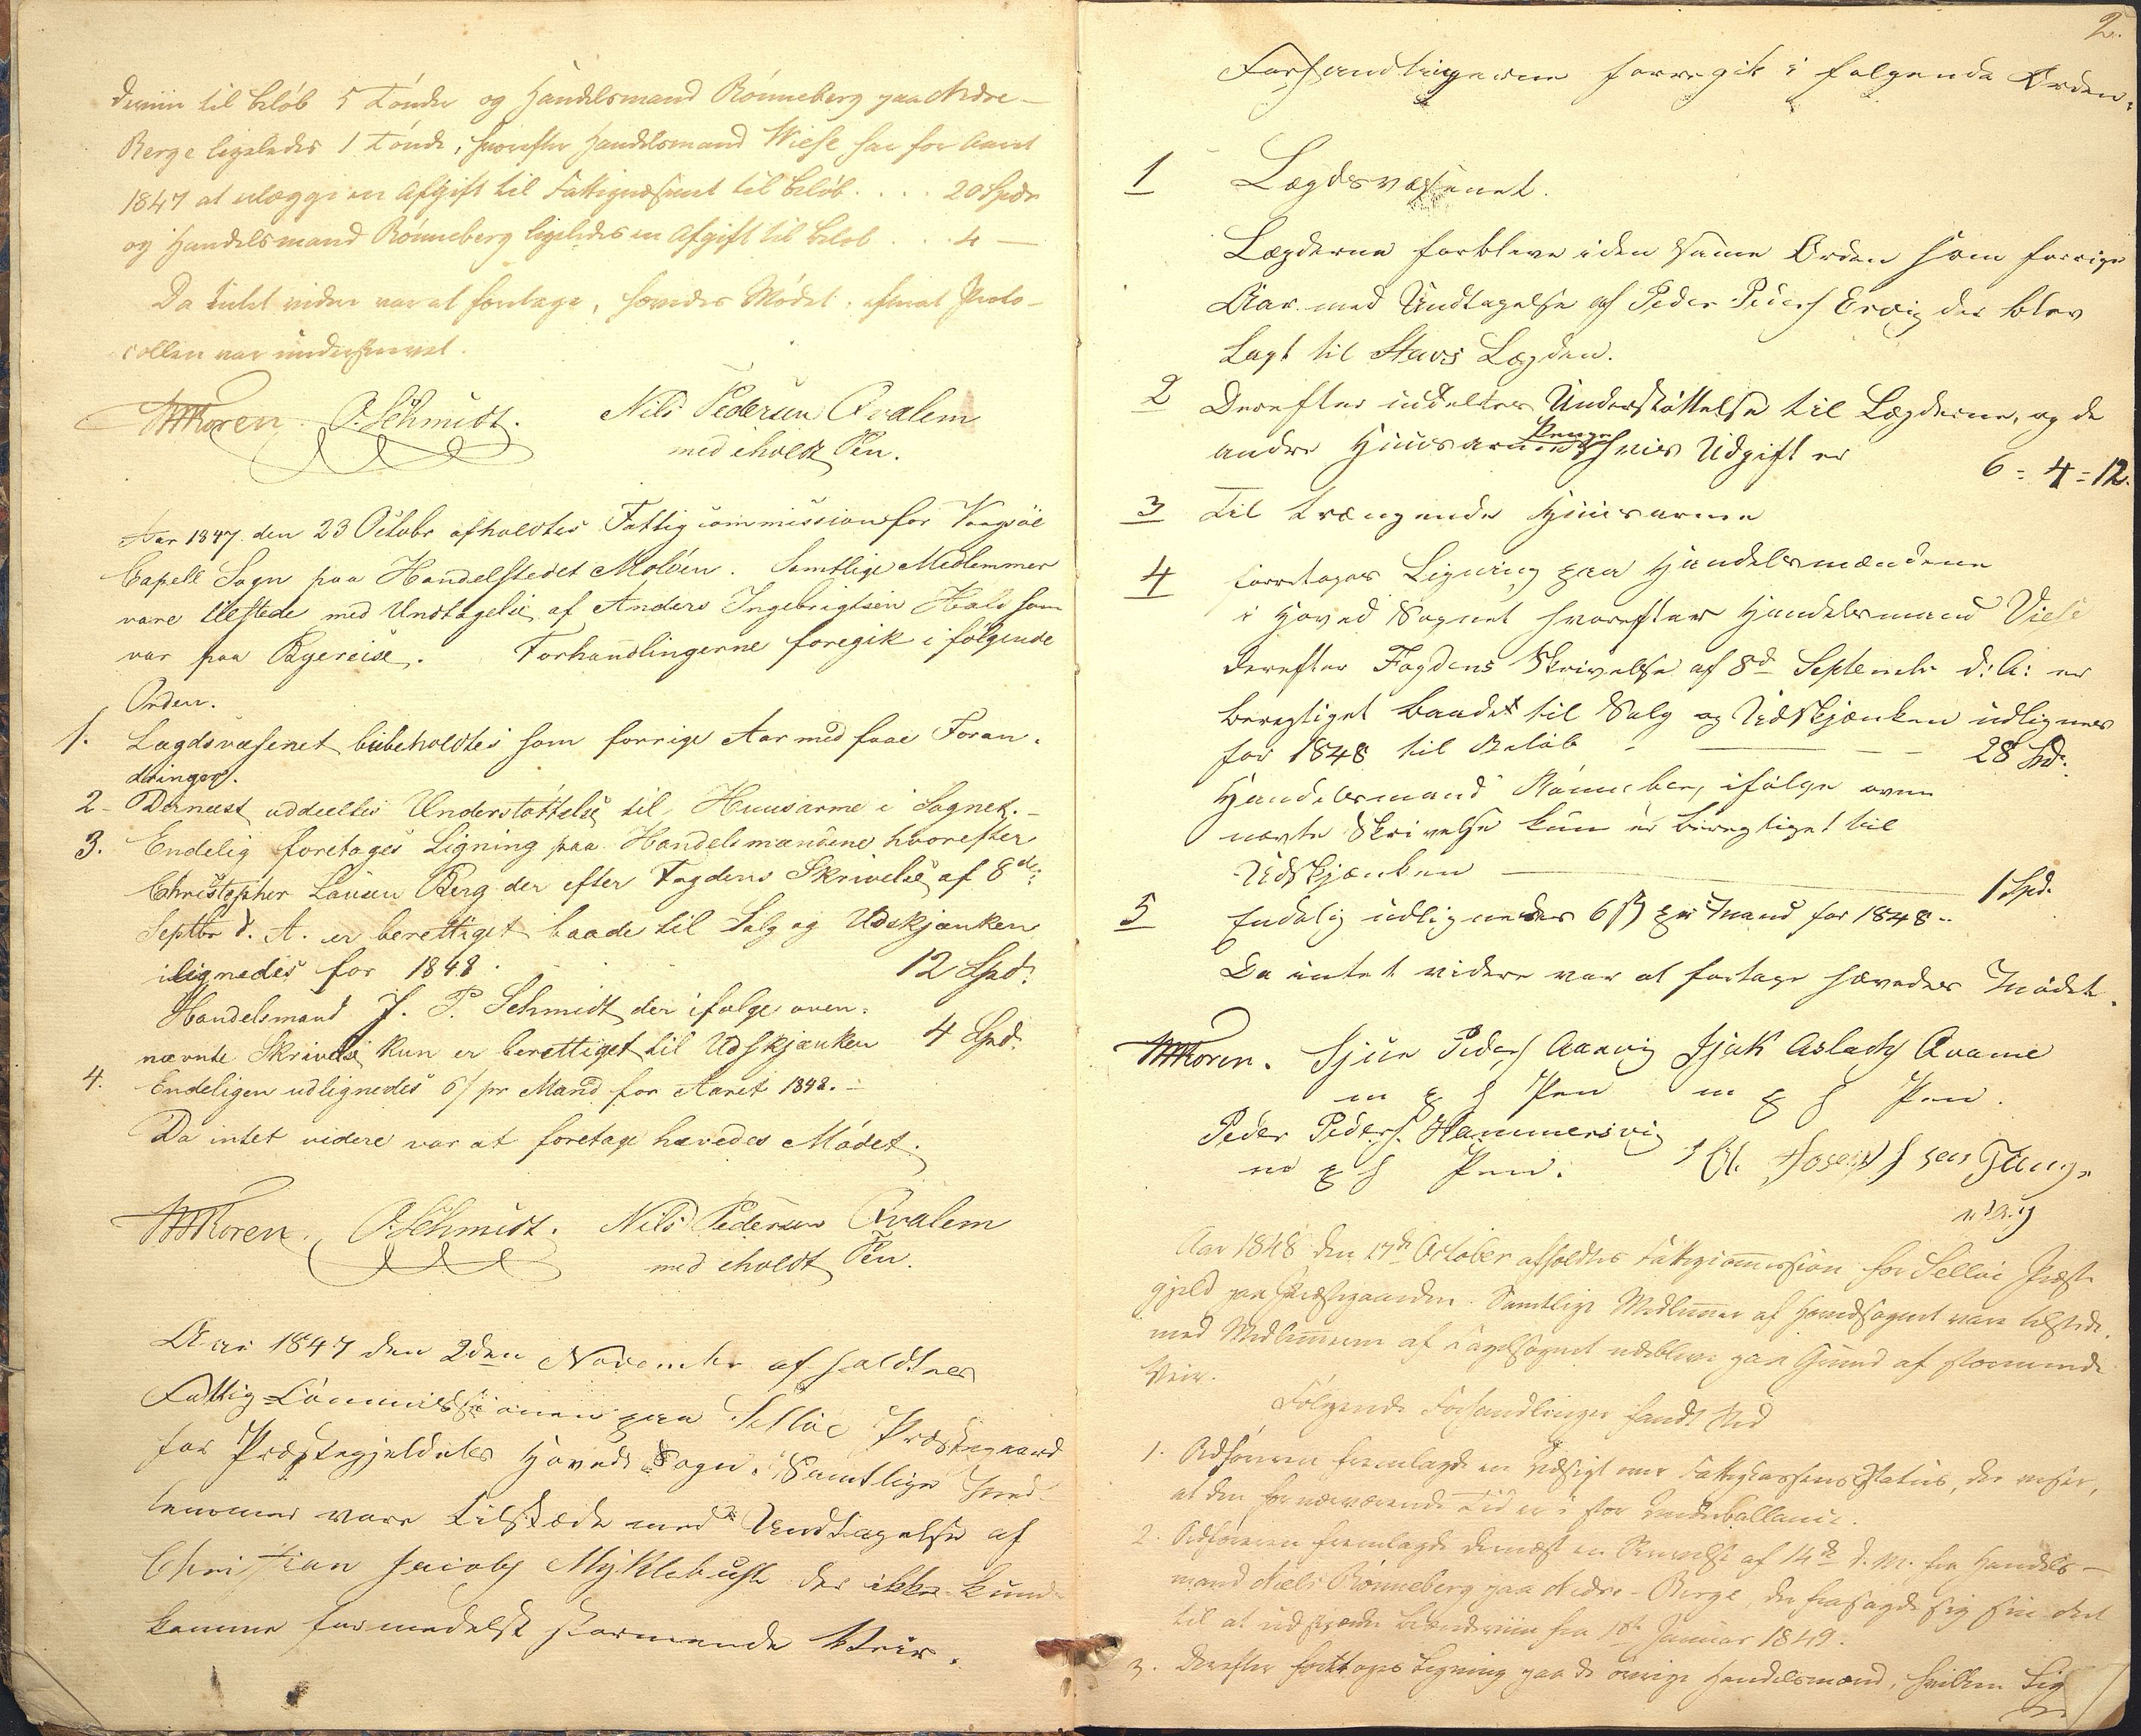 deviin til beløb 5 Tønder og Handelsmand Rønneberg paa Nedre-
Berge ligeledes 1 Tønde, hvorefter Handelsmand Wiese har for Aaret
1847 at erlægge en Afgift til Fattigvæsenet til beløb . . . . 20 Spdr
og Handelsmand Rønneberg ligeledes en Afgift til beløb . . . 4 —
Da Intet videre var at foretage, hævedes Mødet, efterat Proto-
collen var underskrevet.
WKoren. O. Schmidt. Nils Pedersen Qvalem
med iholdt Pen.
Aar 1847 den 23 Octobr afholdtes Fattigcommission for Vaagsøe
Capell Sogn paa Handelstedet Moldøen. Samtlige Medlemmer
vare tilstede med Undtagelse af Anders Ingebrigtsen Hals som
var paa Byereise. Forhandlingerne foregik i følgende
Orden.
1. Lægdsvæsenet bibeholdtes som forrige Aar med faae Foran-
dringer.
2- Dernæst uddeeltes Understøttelse til Huusarme i Sognet.-
3. Endelig foretages Ligning paa Handelsmændene hvorefter
Christopher Lausen Berg der efter Fogdens Skrivelse af 8de
Septbr d. A. er berettiget baade til Salg og Udskjænken
ilignedes for 1848. 12 Spd.
Handelsmand J. P. Schmidt der ifølge oven-
nævnte Skrivelse kun er berettiget til Udskjænken 4 Spd.
4. Endeligen udlignedes 6/ pr Mand for Aaret 1848.-
Da intet videre var at foretage hævedes Mødet.
WKoren. O. Schmidt. Nils Pedersen Qvalem
med iholdt Pen.
Aar 1847 den 2den November afholdtes
Fattig-Commissionen paa Selløe Præstegaard
for Præstegjeldets Hoved Sogn. Samtlige Med-
lemmer vare tilstæde med Undtagelse af
Christian Jacobs Myklebust der ikke kunde
komme formedelst stormende Veir.
2.
Forhandlingerne forregik i følgende Orden.
1 Lægdsvæsenet.
Lægderne forbleve i den same Orden som forrige
Aar med Undtagelse af Peder Peders Ervig der blev
Lagt til Stavs Lægden.
2 Derefter uddeltes Understøttelse til Lægderne, og de
andre Huusarme Penge hvis Udgift er 6 = 4 = 12.
3 Til trængende Huusarme
4 Foretages Ligning paa Handelsmændene
i Hoved Sognet hvorefter Handelsmand Viese
derefter Fogdens Skrivelse af 8d Septembr d: A: er
beregtiget baadet til Salg og Udskjænken udlignes
for 1848 til Beløb - — - 28 Spd.
Handelsmand Rønneber, ifølge oven
nævte Skrivelse kun er beregtiget til
Udskjænken — 1 Spd.
5 Endelig udlignedes 6 ß pr Mand for 1848..
Da intet videre var at fortage hævedes Mødet.
WKoren. Sjur Peders Aarvig Isak Aslacks Qvame
m p h Pen m p h Pen.
Peder Peders. Hammersvig
m p h Pen.
Aar 1848 den 17de October afholdtes Fattigcommission for Selløe Præste
gjeld paa Præstegaarden. Samtlige Medlemmer af Hovedsognet vare tilstede,
med Medlemmerne af Capelsognet udebleve paa Grund af stormende
Veir.
Følgende Forhandlinger fandt Sted
1. Ordføreren fremlagde en Udsigt over Fattigkassens Status, der viser,
at den for nærværende Tid er i stor Underballance.
2. Ordføreren fremlagde dernæst en Skrivelse af 14de d. M. fra Handels-
mand Niels Rønneberg paa Nedre-Berge, der frasagde sig sin Ret
til at udskjænke Brændeviin fra 1ste Januar 1849.
3. Derefter foretoges Ligning paa de øvrige Handelsmænd, hvilken Lig